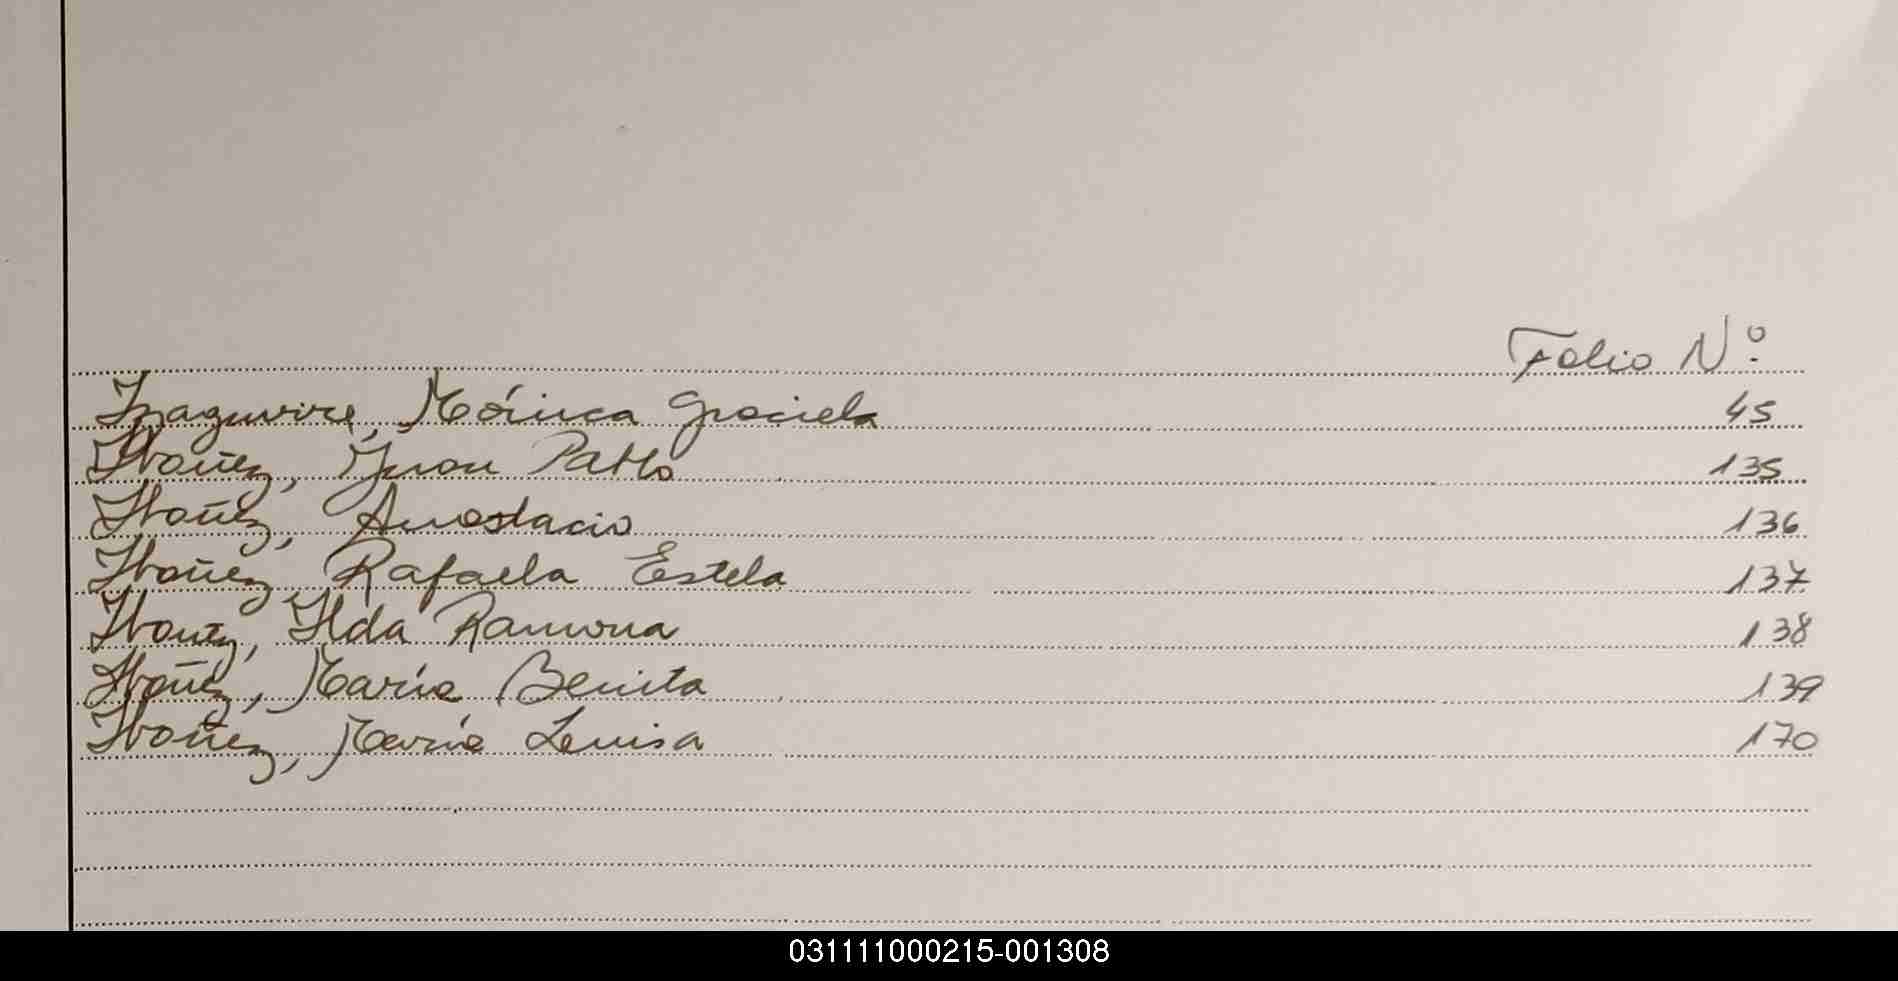 Folio Nº
Izaguirre, Mónica Graciela 45
Ibañez, Juan Pablo 135
Ibañez, Anastacio 136
Ibañez Rafaela Estela 137
Ibañez, Ilda Ramona 138
Ibañez, María Benita 139
Ibañez, María Luisa 170
031111000215-001308